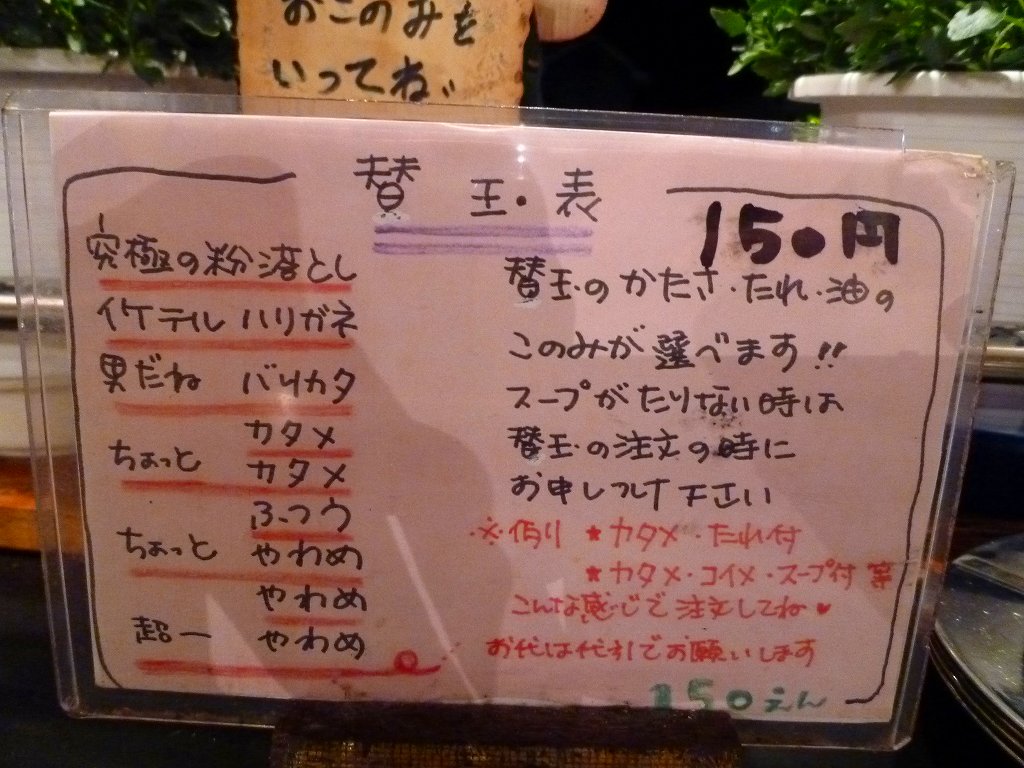 おこのみを
いってね〃
替玉・表
150円
究極の粉落とし
イケテル ハリガネ
男だね バリカタ
カタメ
ちょっと カタメ
ふつう
ちょっと やわめ
やわめ
超ー やわめ
替玉・のかたさ・たれ・油の
このみが選べます!!
スープがたりない時は
替玉・の注文の時に
お申しつけ下さい
※例り ★カタメ・たれ付
★カタメ・コイメ・スープ付 等
こんな感じで注文してね♥
お代は代引でお願いします
150えん